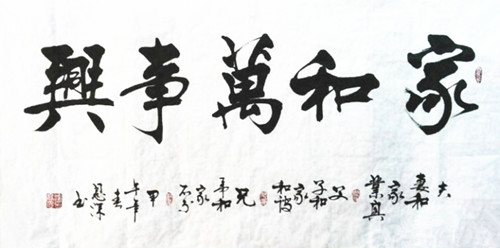 家和萬事興
夫妻和家業興 父子和家 兄弟和家不分 甲午年春 恩深书